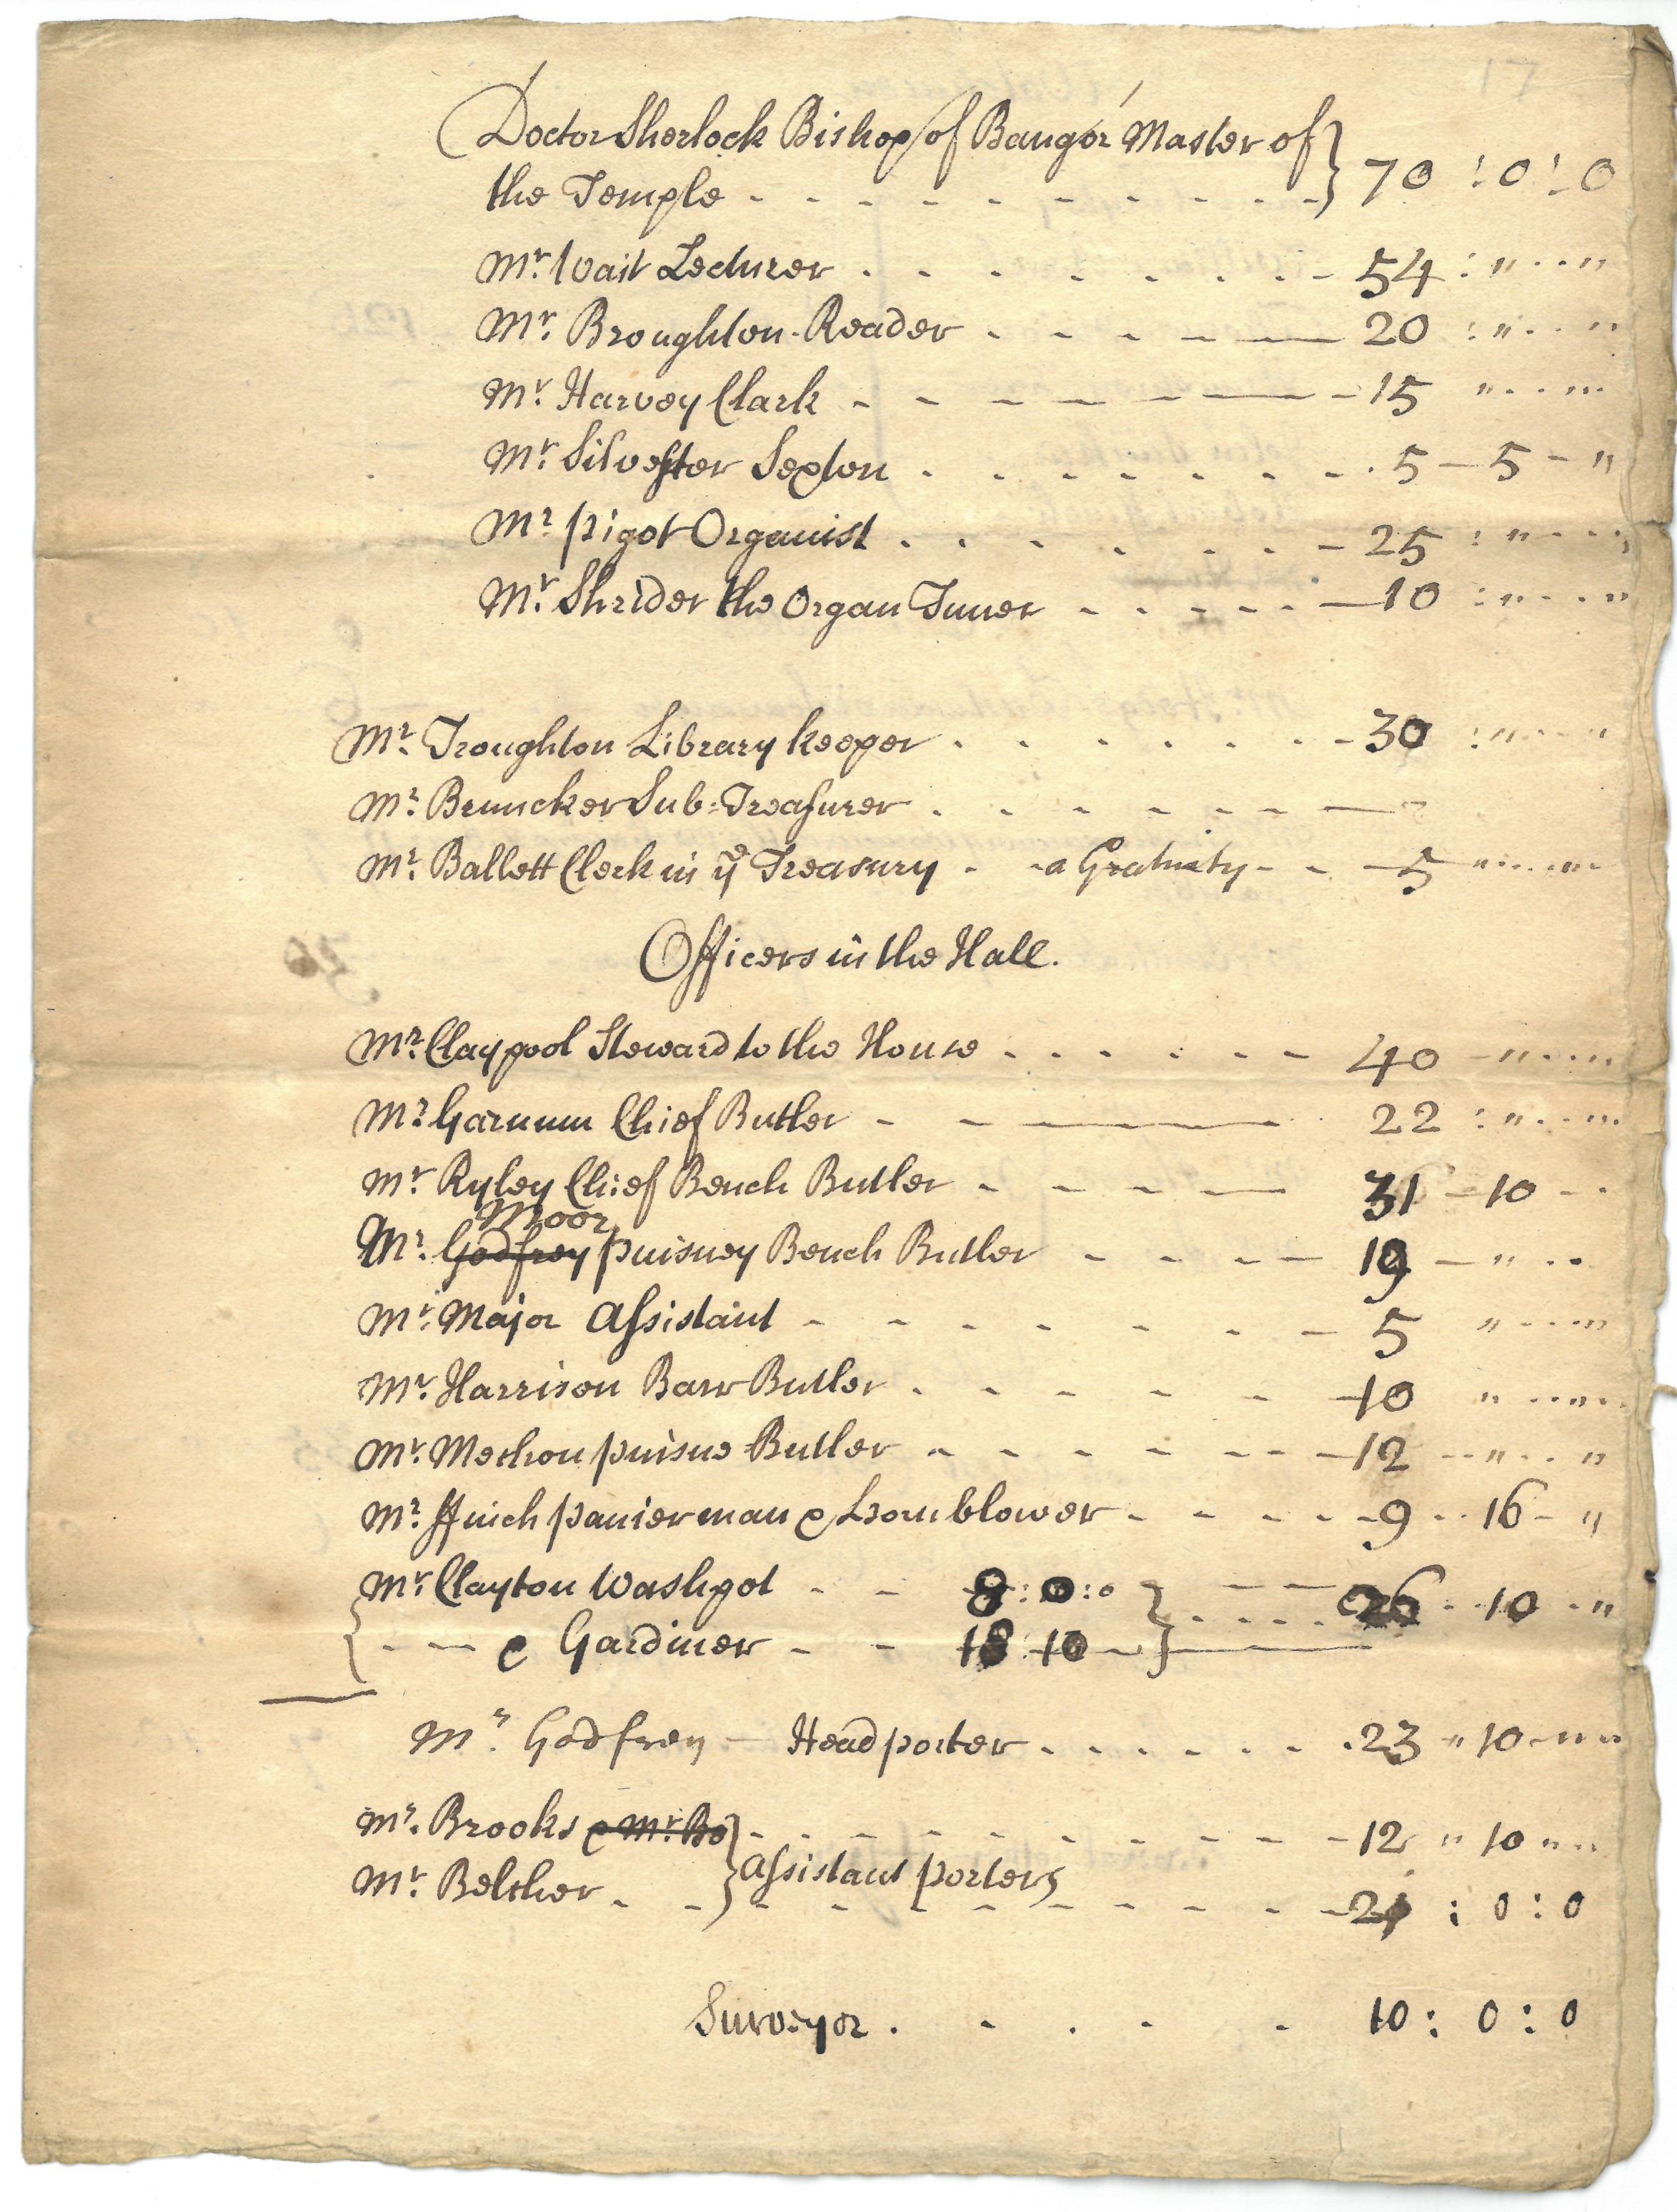 Doctor Sherlock Bishop of Bangor Master of
the Temple - - - - - - - - - - 70 : 0 : 0
Mr. Wait Lecturer . . - - - - - - 54 : " - - "
Mr. Broughton Reader - - - - — 20 : " - - "
Mr. Harvey Clark - - - - - — 15 " - - "
Mr. Silvester Sexton . - - - - - - 5 — 5 — "
Mr. pigot Organist . . - - - - - 25 : " - - "
Mr. Shrider the Organ Tuner - - - - — 10 : " - - "
Mr. Troughton Library keeper . - - - - - 30 : " - - "
Mr. Bruncker Sub=Treasurer . - - - - - —
Mr. Ballett Clerk in ye Treasury - - a Gratuity - - 5 " - - "
Officers in the Hall.
Mr. Claypool Steward to the House - - - - - - 40 - " - - "
Mr. Garnum Chief Butler - - — 22 : " - - "
Mr. Ryley Chief Bench Butler - - - — 31 — 10 - -
Moor
Mr. Godfrey puisney Bench Butler - - - - 19 — " - -
Mr. Major Assistant - - - - - - - 5 " - - "
Mr. Harrison Barr Butler . - - - - - 10 " - - "
Mr. Methou puisne Butler - - - - - - 12 - " - - "
Mr. ffinch panierman & Hornblower - - - - 9 - - 16 - "
Mr. Clayton Washpot - - 8 : 0 : 0 } - - - 26 - - 10 - "
{ - - & Gardiner - - 18 : 10 —
Mr. Godfrey — Head porter . . . . . . 23 " 10 - " "
Mr. Brooks & Mr. Bo - - - - - - - - 12 " 10 " "
assistant porters
Mr. Belcher - - - - - - - - - - 21 : 0 : 0
Surveyor . - . - - 10 : 0 : 0